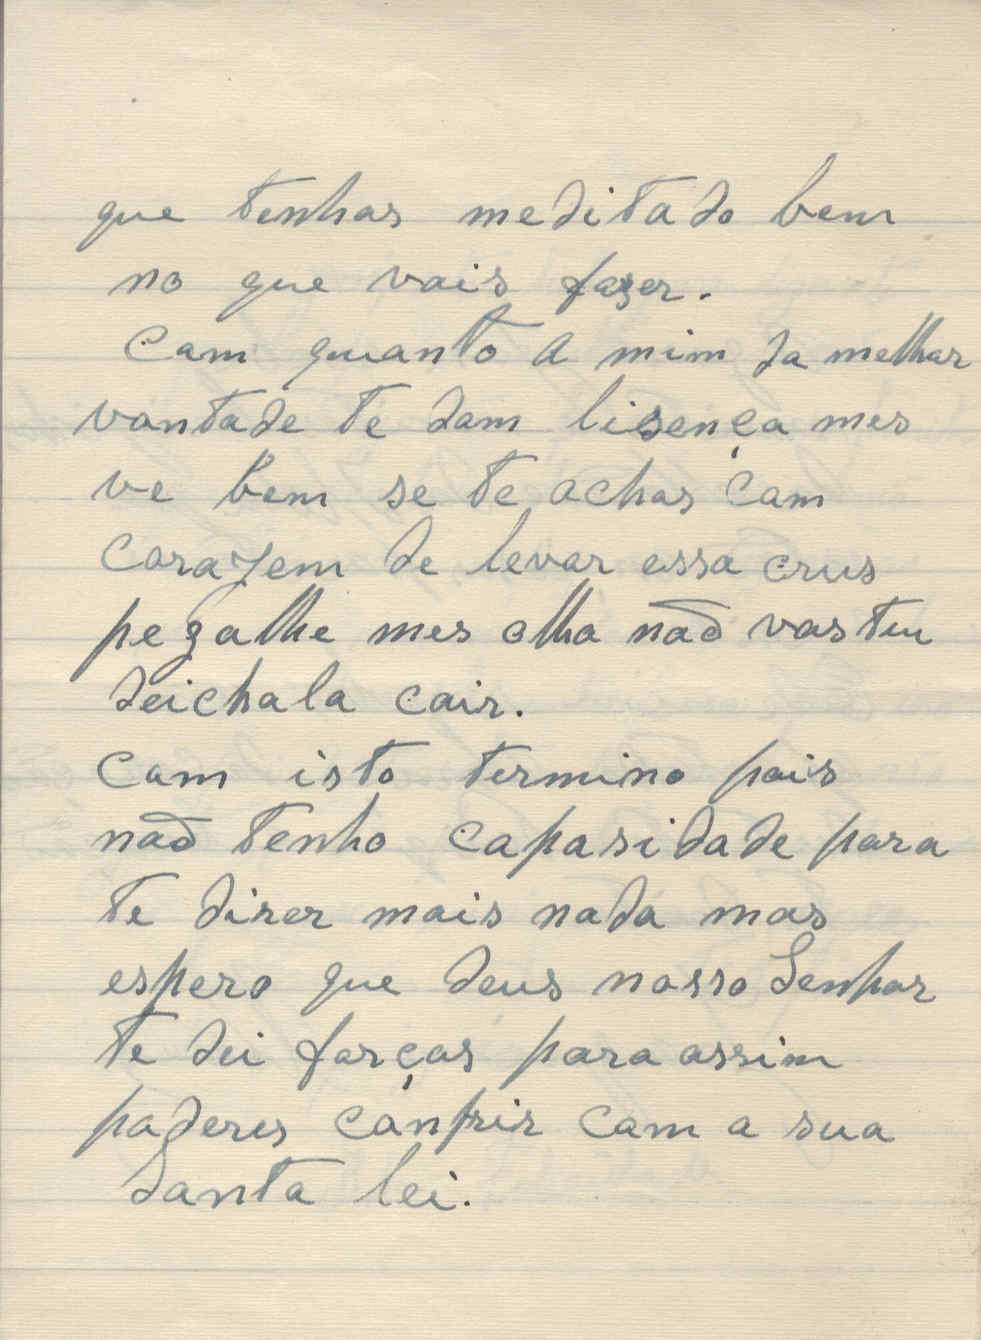 que tenhas meditado bem
no que vais faser.
Cam quanto a mim da melhar
vantade te dam lisença mes
ve bem se te achas cam
corazem de levar essa crus
pegalhe mes olha não vas tu
deichala cair.
Cam isto termino pois
não tenho capasidade para
te diser mais nada mas
espero que Deus nosso Senhor
te dei forças para assim
paderes canprir cam a sua
Santa lei.